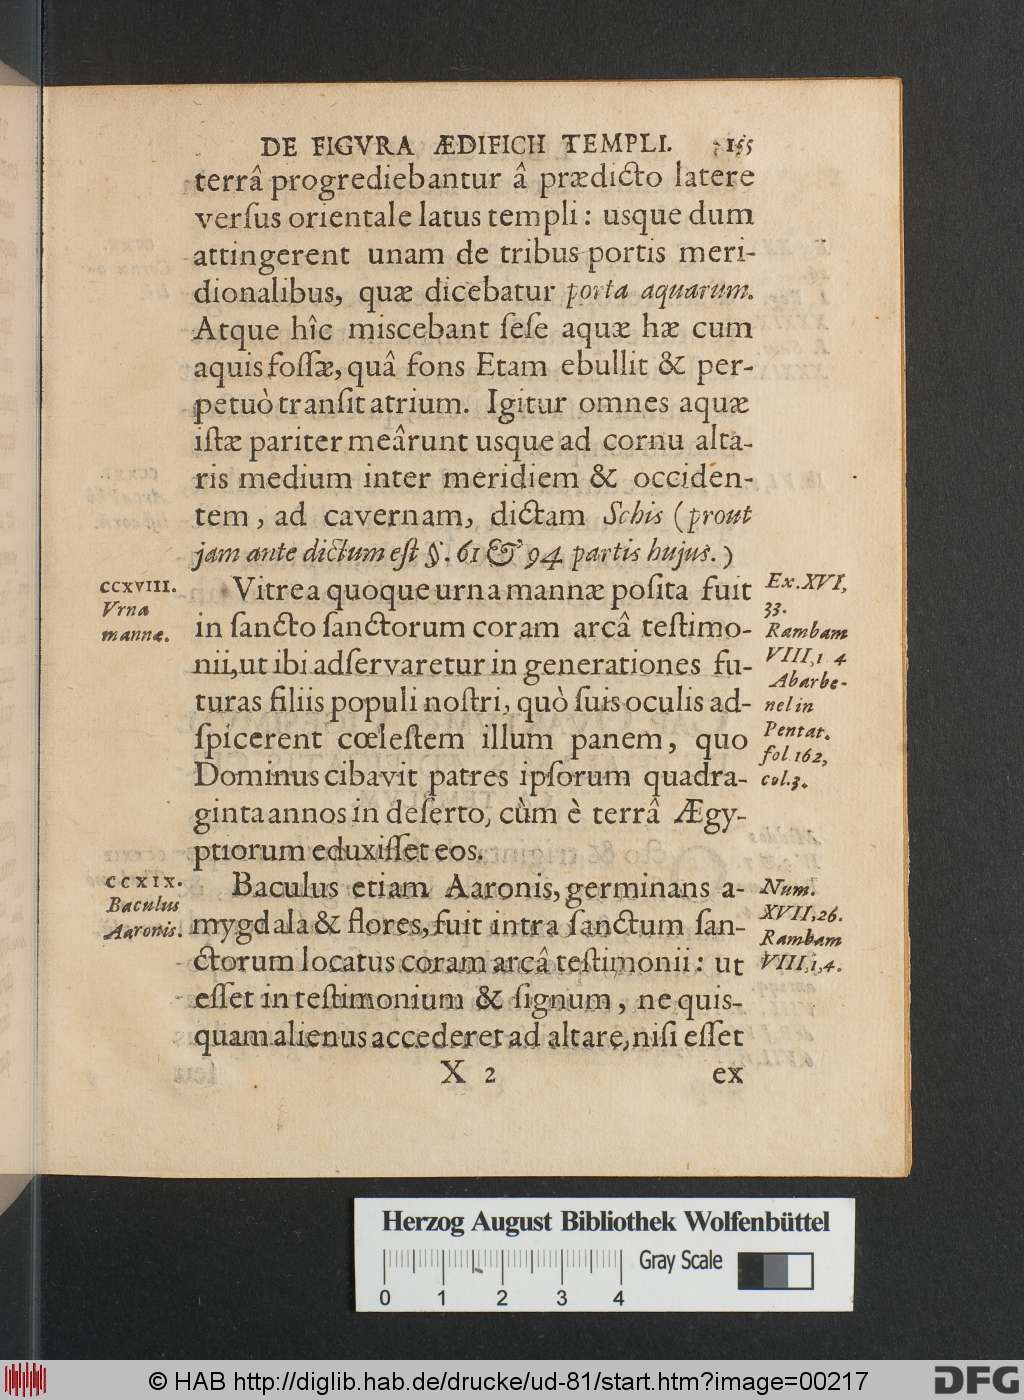 DE FIGVRA ÆDIFICII TEMPLI. 155
terrâ progrediebantur â prædicto latere
verſus orientale latus templi: usque dum
attingerent unam de tribus portis meri-
dionalibus, quæ dicebatur porta aquarum.
Atque hîc miscebant ſeſe aquæ hæ cum
aquis foſſæ, quâ fons Etam ebullit & per-
petuò tranſit atrium. Igitur omnes aquæ
iſtæ pariter meârunt usque ad cornu alta-
ris medium inter meridiem & occiden-
tem, ad cavernam, dictam Schis (prout
jam ante dictum eſt §. 61 & 94 partis hujus.)
CCXVIII.
Vrna
mannæ.
Vitrea quoque urna mannæ poſita fuit
in ſancto ſanctorum coram arcâ teſtimo-
nii, ut ibi adſervaretur in generationes fu-
turas filiis populi noſtri, quò ſuis oculis ad-
ſpicerent cœleſtem illum panem, quo
Dominus cibavit patres ipſorum quadra-
ginta annos in deſerto, cùm è terrâ Ægy-
ptiorum eduxiſſet eos.
Ex. XVI,
33.
Rambam
VIII, 1 4
Abarbe-
nel in
Pentat.
fol 162,
col. 3.
CCXIX.
Baculus
Aaronis.
Baculus etiam Aaronis, germinans a-
mygdala & flores, fuit intra ſanctum ſan-
ctorum locatus coram arcâ teſtimonii: ut
eſſet in teſtimonium & ſignum, ne quis-
quam alienus accederet ad altare, niſi eſſet
Num.
XVII, 26.
Rambam
VIII, 1, 4.
X 2 ex
Herzog August Bibliothek Wolfenbüttel
Gray Scale
0 1 2 3 4
© HAB http://diglib.hab.de/drucke/ud-81/start.htm?image=00217
DFG